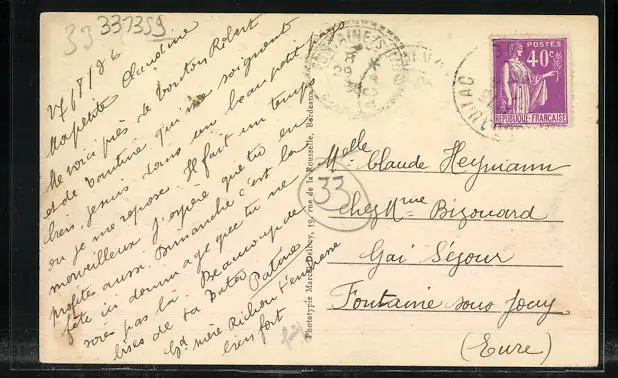 33 33 337359
27/8/36
Ma petite Claudine
Me voici près de tonton Robert
et de tantine qui me soignent
bien, je suis dans un beau petit pays
où je me repose. Il fait un temps
merveilleux j'espère que tu en
profites aussi. Dimanche c'est la
fête ici dommage que tu ne
sois pas là. Beaucoup de
bises de ta
Gd mère
bien fort
Phototype Marcel Delboy, 19, rue de la Rousselle, Bordeaux
POSTES
40c
RÉPUBLIQUE FRANÇAISE
Melle Claude Heymann
33
chez Mme Bizouard
Gai Séjour
Fontaine sous Jouy
(Eure)